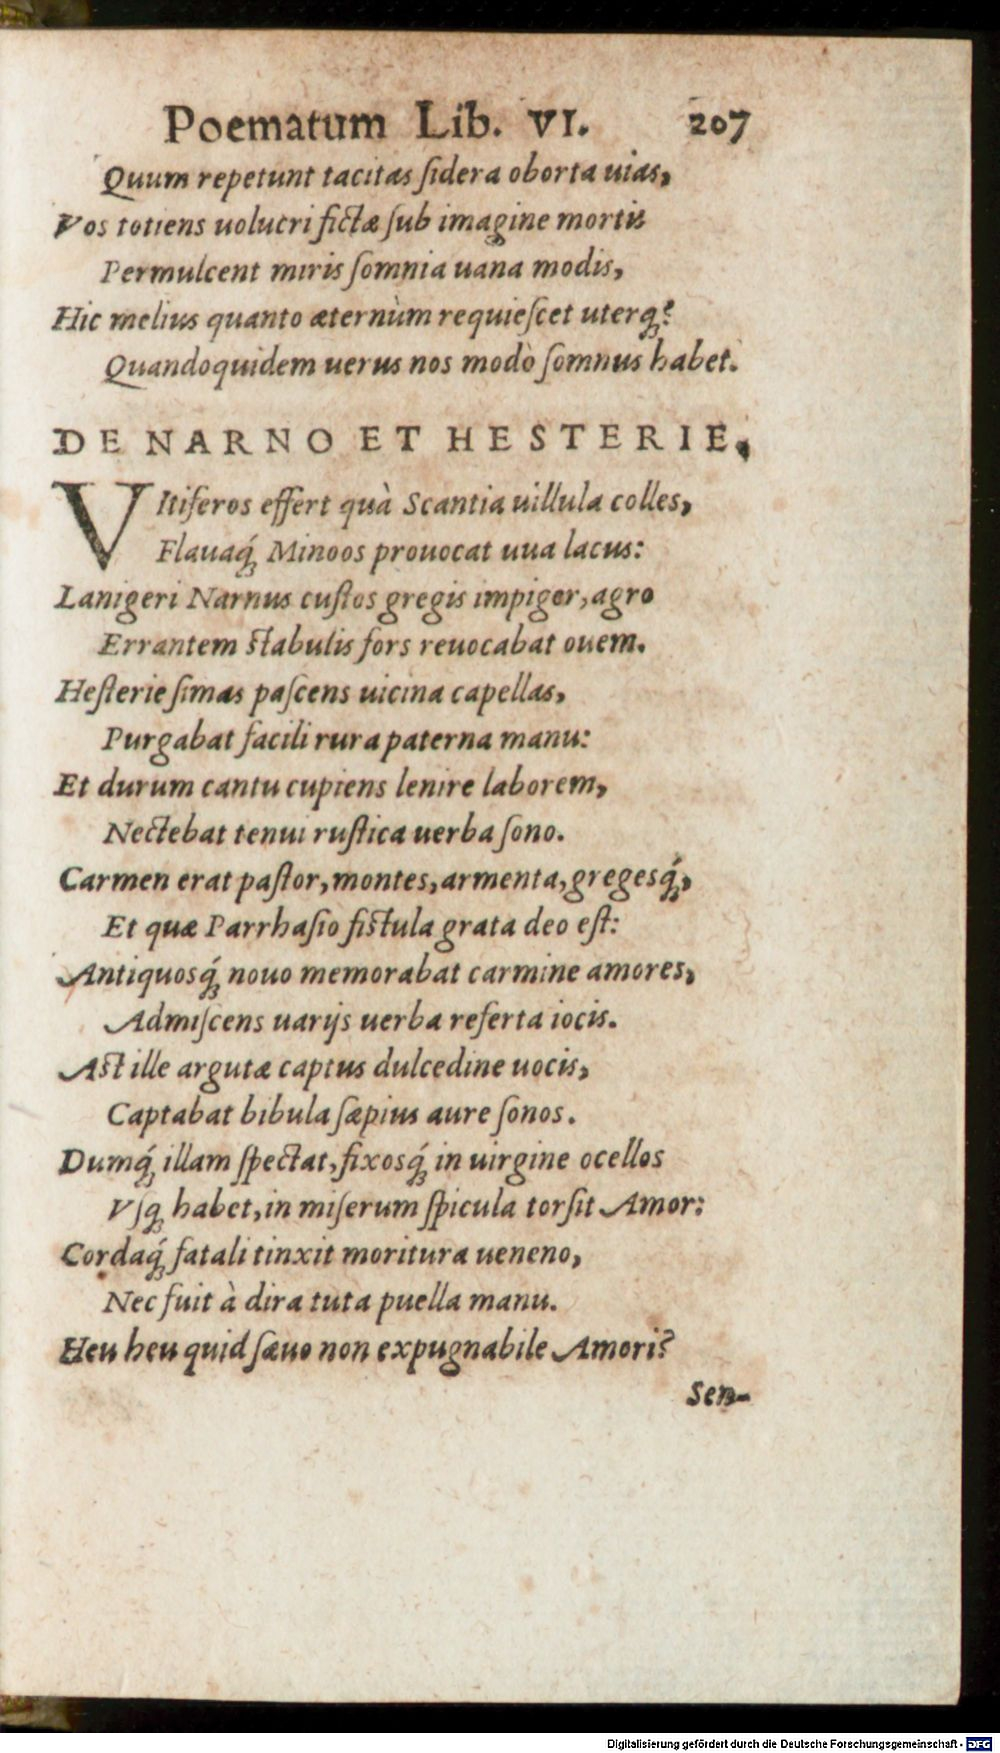 Poematum Lib. VI. 207
Quum repetunt tacitas ſidera oborta uias,
Vos totiens uolucri fictæ ſub imagine mortis
Permulcent miris ſomnia uana modis,
Hic melius quanto æternùm requieſcet uterq́;?
Quandoquidem uerus nos modò ſomnus habet.
DE NARNO ET HESTERIE,
VItiferos effert quà Scantia uillula colles,
Flauaq́; Minoos prouocat uua lacus:
Lanigeri Narnus cuſtos gregis impiger, agro
Errantem ſtabulis fors reuocabat ouem.
Heſterie ſimas paſcens uicina capellas,
Purgabat facili rura paterna manu:
Et durum cantu cupiens lenire laborem,
Nectebat tenui ruſtica uerba ſono.
Carmen erat paſtor, montes, armenta, gregesq́;,
Et quæ Parrhaſio fiſtula grata deo eſt:
Antiquosq́; nouo memorabat carmine amores,
Admiſcens uarijs uerba referta iocis.
Aſt ille argutæ captus dulcedine uocis,
Captabat bibula ſæpius aure ſonos.
Dumq́; illam ſpectat, fixosq́; in uirgine ocellos
Vſq; habet, in miſerum ſpicula torſit Amor:
Cordaq́; fatali tinxit moritura ueneno,
Nec fuit à dira tuta puella manu.
Heu heu quid ſæuo non expugnabile Amori?
Sen-
Digitalisierung gefördert durch die Deutsche Forschungsgemeinschaft - DFG